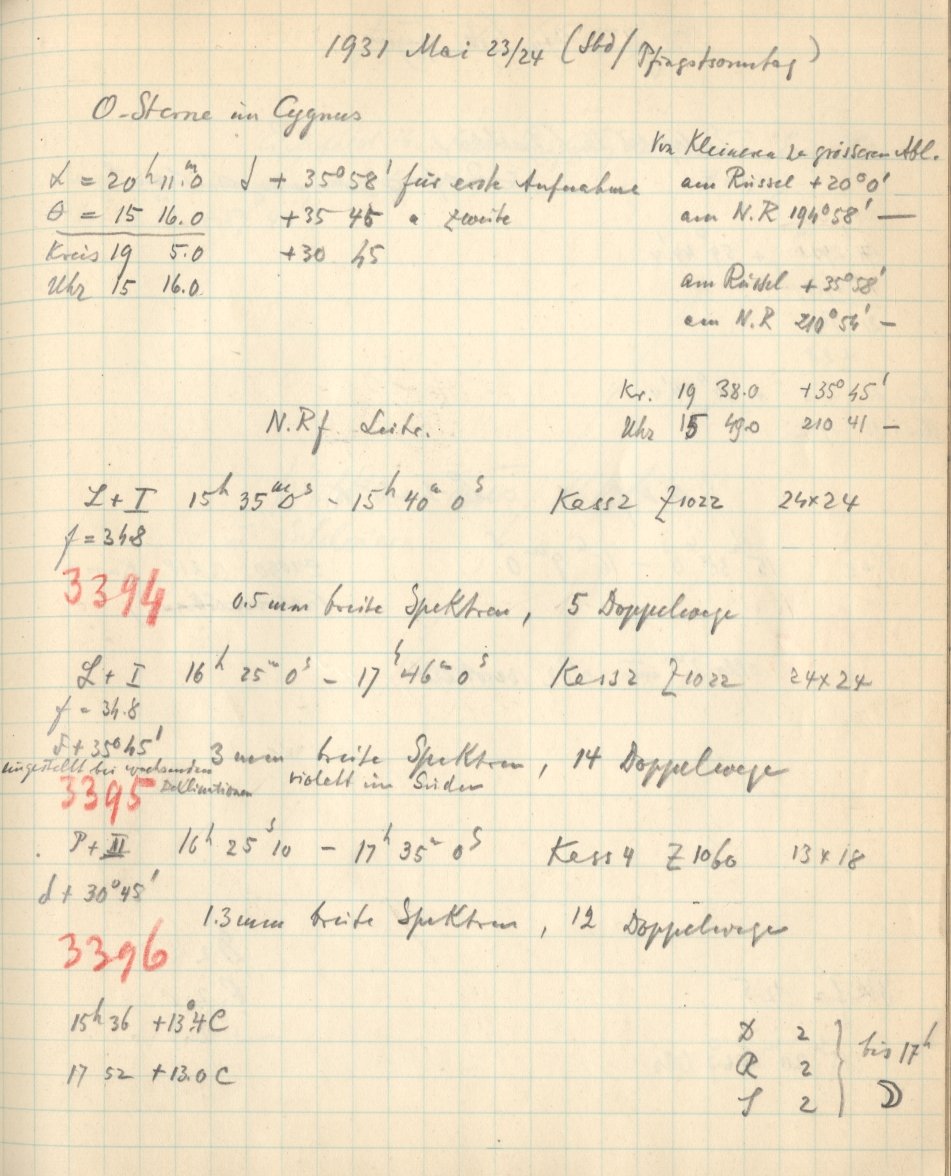 1931 Mai 23/24 (Sbd/Pfingstsonntag)
O-Sterne im Cygnus
Von Kleineren zu grösseren Abl.
α = 20ʰ 11ᵐ.0 δ + 35°58' für erste Aufnahme am Rüssel +20°0'
θ = 15 16.0 +35 45 " zweite am N.R 194°58' —
Kreis 19 5.0 +30 45
Uhr 15 16.0 am Rüssel +35°58'
am N.R 210°54' —
Kr. 19 38.0 +35°45'
N.Rf. Leitr. Uhr 15 49.0 210 41 —
L + I 15ʰ 35ᵐ 0ˢ - 15ʰ 40ᵐ 0ˢ Kass 2 Z 1022 24×24
f = 34.8
3394 0.5 mm breite Spektren, 5 Doppelwege
L + I 16ʰ 25ᵐ 0ˢ - 17ʰ 46ᵐ 0ˢ Kass 2 Z 1022 24×24
f = 34.8
δ + 35°45' 3 mm breite Spektren, 14 Doppelwege
eingestellt bei wachsenden Deklinationen violett im Süden
3395
P + II 16ʰ 25ˢ 10 - 17ʰ 35ᵐ 0ˢ Kass 4 Z 1060 13×18
δ + 30°45'
1.3 mm breite Spektren, 12 Doppelwege
3396
15ʰ 36 +13°.4 C
D 2
17 52 +13.0 C R 2 bis 17ʰ
S 2 ☽